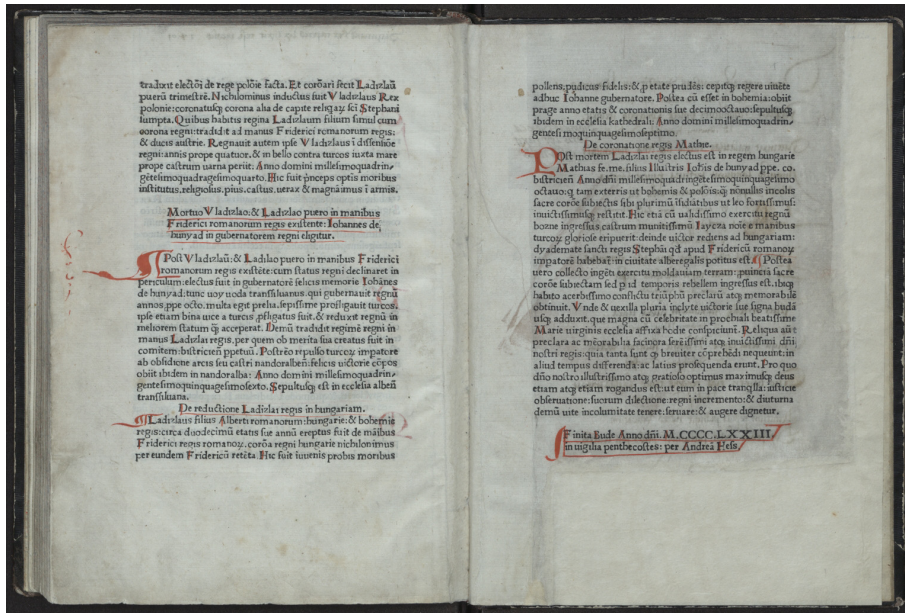 tradixit electōi de rege polōie facta. Et corōari fecit Ladizlaū
puerū trimestrē. Nichilominus inductus fuit Vladizlaus Rex
polonie: coronatusq; corona alia de capite reliqaꝝ sci Stephani
sumpta. Quibus habitis regina Ladizlaum filium simul cum
corona regni: tradidit ad manus Friderici romanorum regis:
& ducis austrie. Regnauit autem ipse Vladizlaus ī dissensiōe
regni: annis prope quatuor. & in bello contra turcos iuxta mare
prope castrum uarna periit: Anno domini millesimoquadrin⸗
gētesimoquadragesimoquarto. Hic fuit pnceps optīs moribus
institutus. religiosus. pius. castus. uerax & magnāimus ī armis.
Mortuo Vladizlao: & Ladizlao puero in manibus
Friderici romanorum regis existente: Iohannes de
hunyad in gubernatorem regni eligitur.
Post Vladizlaū: & Ladilao puero in manibus Friderici
romanorum regis existēte: cum status regni declinaret in
periculum: electus fuit in gubernatorē felicis memorie Iohānes
de hunyad: tunc uoyuoda transsiluanus. qui gubernauit regnū
annos. ppe octo. multa egit prelia. sepissime profligauit turcos.
ipse etiam bina uice a turcis pfligatus fuit. & reduxit regnū in
meliorem statum q̄ acceperat. Demū tradidit regimē regni in
manus Ladizlai regis. per quem ob merita sua creatus fuit in
comitem: bistriciēn ppetuū. Postrēo repulso turcoꝝ impatore
ab obsidione arcis seu castri nandoralbeñ: felicis uictorie cōpos
obiit ibidem in nandoralba: Anno domini millesimoquadrin⸗
gentesimoquinquagesimosexto. Sepultusq; est in ecclesia albeñ
transsiluana.
De reductione Ladizlai regis in hungariam.
Ladizlaus filius Alberti romanorum: hungarie: & bohemie
regis: circa duodecimū etatis sue annū ereptus fuit de māibus
Friderici regis romanoꝝ. corōa regni hungarie nichilonimus
per eundem Fridericū retēta. Hic fuit iuuenis probis moribus
pollens. pudicus fidelis: & p etate prudēs: cepitq; regere uiuēte
adhuc Iohanne gubernatore. Postea cū esset in bohemia: obiit
prage anno etatis & coronationis sue decimooctauo: sepultusq;
ibidem in ecclesia kathedrali. Anno domini millesimoquadrin⸗
gentesimoquinquagesimoseptimo.
De coronatione regis Mathie.
Post mortem Ladizlai regis electus est in regem hungarie
Mathias fe. me. filius Illustris Iohis de hunyad ppe. co.
bistricień Anno dñi millesimoquadringētesimoquinquagesimo
octauo: q tam exterris ut bohemis & polōis: q̄ nonullis incolis
sacre corōe subiectis sibi plurimū īsidiātibus ut leo fortissimus:
inuictissimusq; restitit. Hic etiā cū ualidissimo exercitu regnū
bozne ingressus. castrum munitissimū Iaycza noīe e manibus
turcoꝝ gloriose eripuerit: deinde uictor rediens ad hungariam:
dyademate sancti regis Stephāi qd apud Fridericū romanoꝝ
impatorē habebat̄: in ciuitate alberegalis potitus est. Postea
uero collecto ingēti exercitu moldauiam terram: puincia sacre
corōe subiectam sed p id temporis rebellem ingressus est. ibiq;
habito acerbissimo conflictu triūphū preclarū atq; memorabilē
obtinuit. Vnde & uexilla pluria inclyte uictorie sue signa budā
usq; adduxit. que magna cū celebritate in prochiali beatissime
Marie uirginis ecclesia affixa hodie conspiciunt̄. Reliqua aūt
preclara ac mēorabilia facinora serēissimi atq; inuictissimi dñi
nostri regis: quia tanta sunt q̄ breuiter cōprehēdi nequeunt: in
aliud tempus differenda: ac latius prosequenda erunt. Pro quo
dño nostro illustrissimo atq; gratioso optimus maximusq; deus
etiam atq; etiam rogandus est: ut eum in pace tranqlla: iusticie
obseruatione: suorum dilectione: regni incremento: & diuturna
demū uite incolumitate tenere: seruare: & augere dignetur.
Finita Bude Anno dñi. M.CCCC.LXXIII.
in uigilia penthecostes: per Andreā Hess.